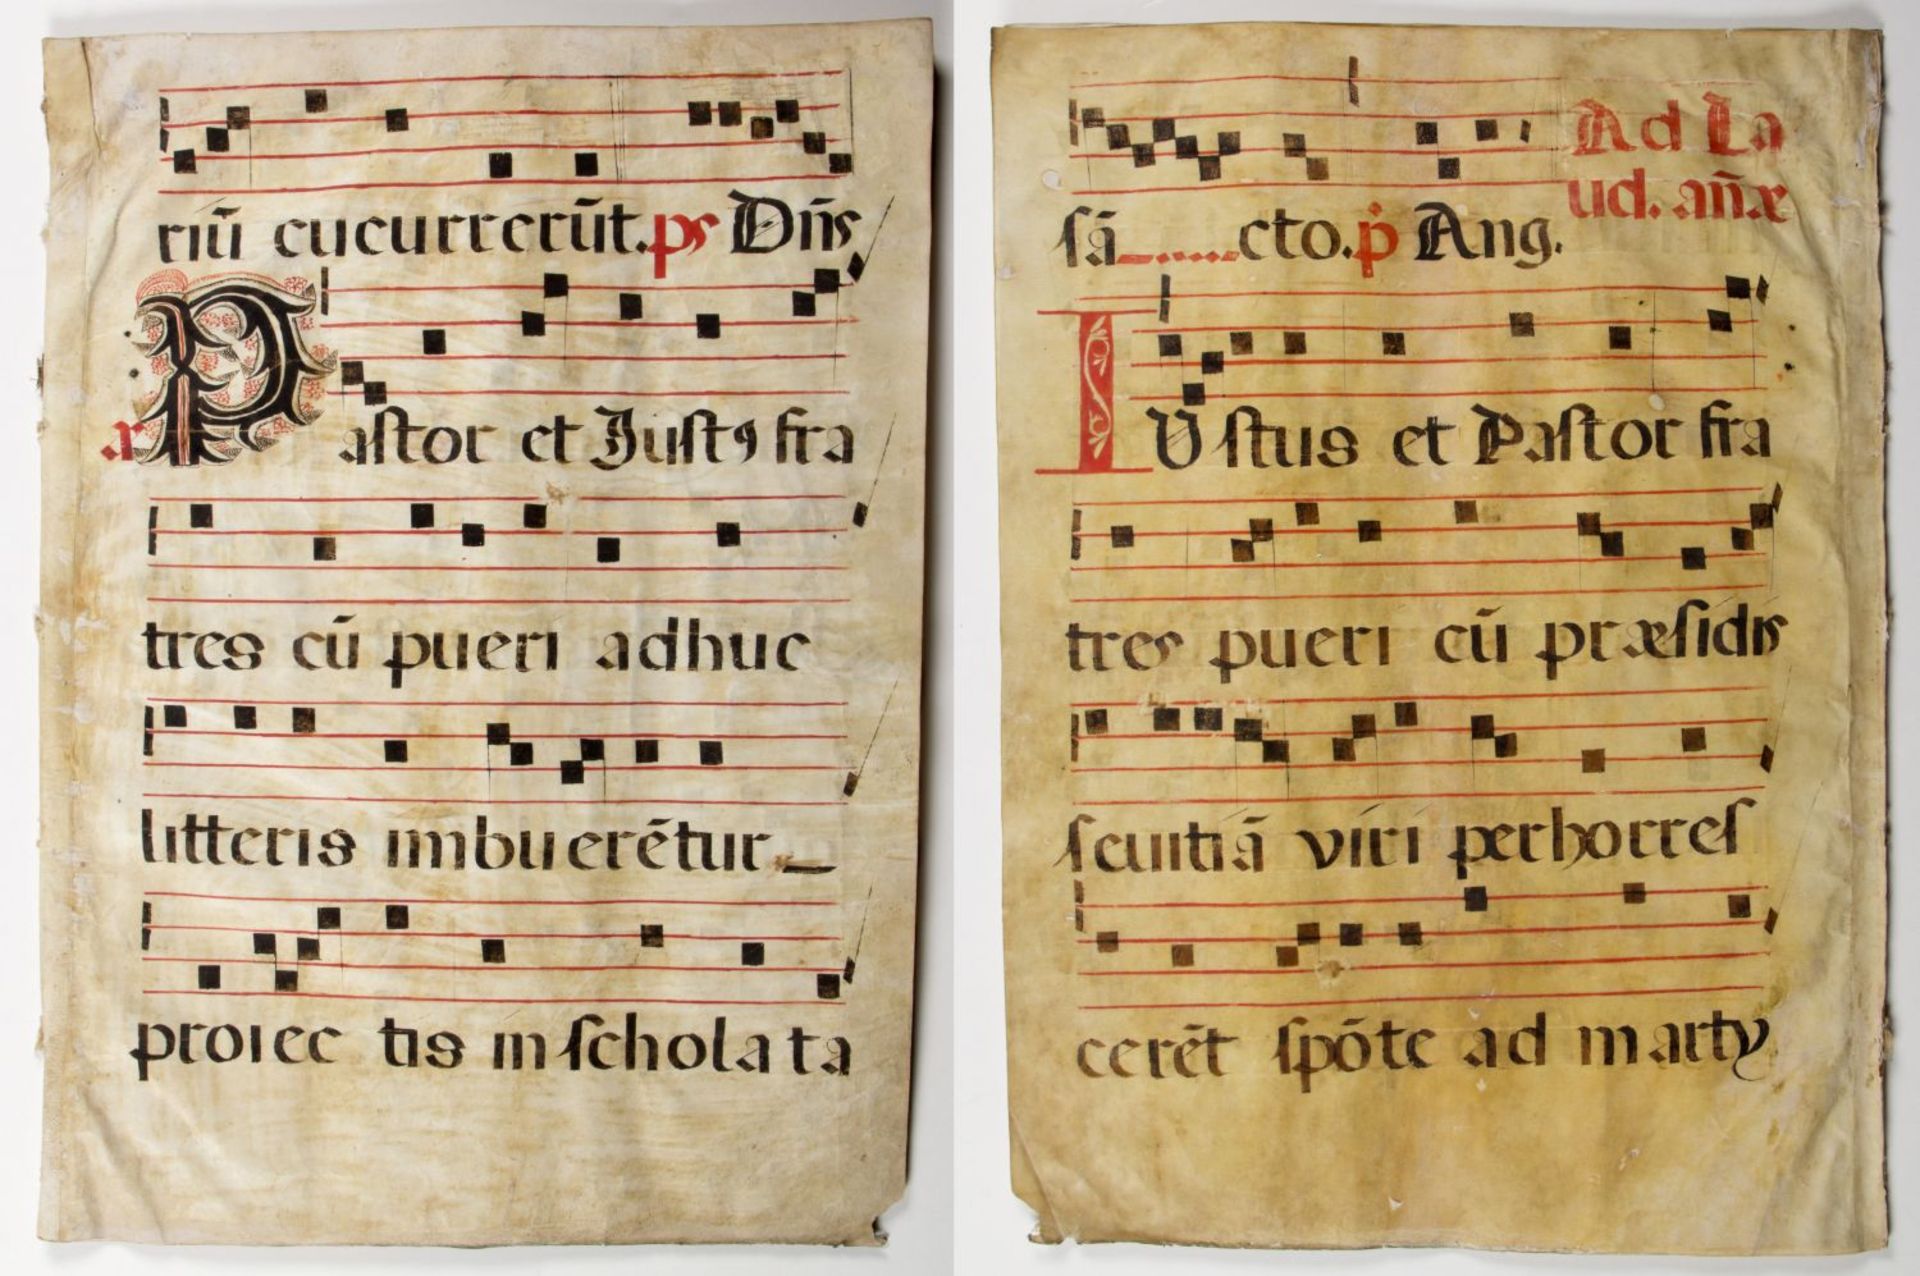 riū cucurrerūt. ps Dn̄s
a Pastor et Justꝯ fra
tres cū pueri adhuc
litteris imbuerētur
proiec tis in schola ta
sā cto. p̄ Ang.
Ad La
ud. an̄æ
IUstus et Pastor fra
tres pueri cū præsidis
sęuitiā viri perhorres
cerēt spōte ad marty